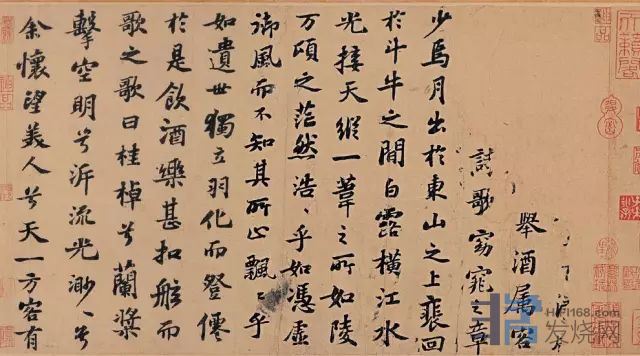 舉酒属客
詩歌窈窕之章
少焉月出於東山之上裵回
於斗牛之間白露橫江水
光接天縱一葦之所如陵
万頃之茫然浩〻乎如憑虛
御風而不知其所止飄〻乎
如遺世獨立羽化而登僊
於是飲酒樂甚扣舷而
歌之歌曰桂棹兮蘭槳
擊空明兮泝流光渺〻兮
余懷望美人兮天一方客有
天籟閣
HIFI168.com
发烧网